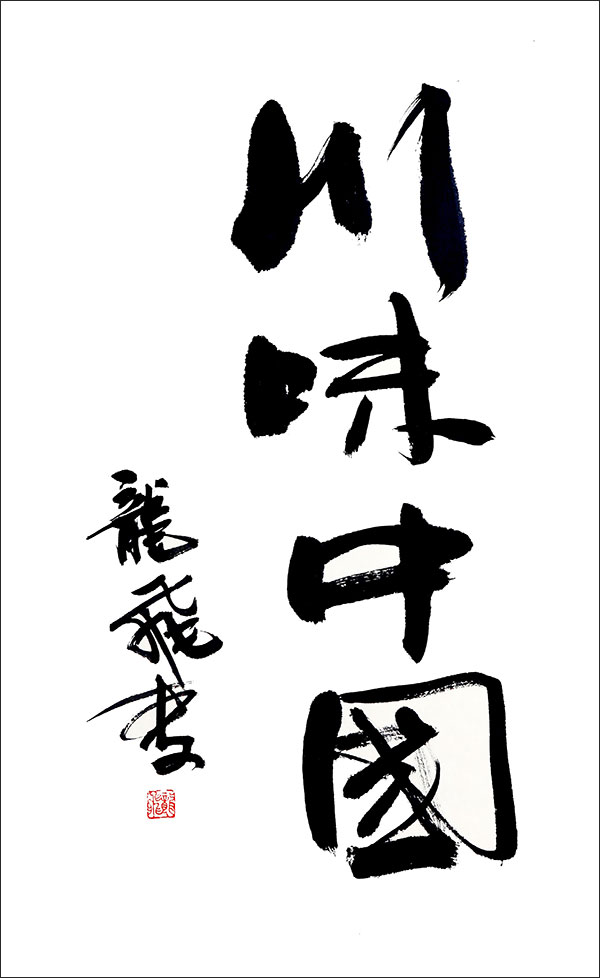 川味中國
龍飛